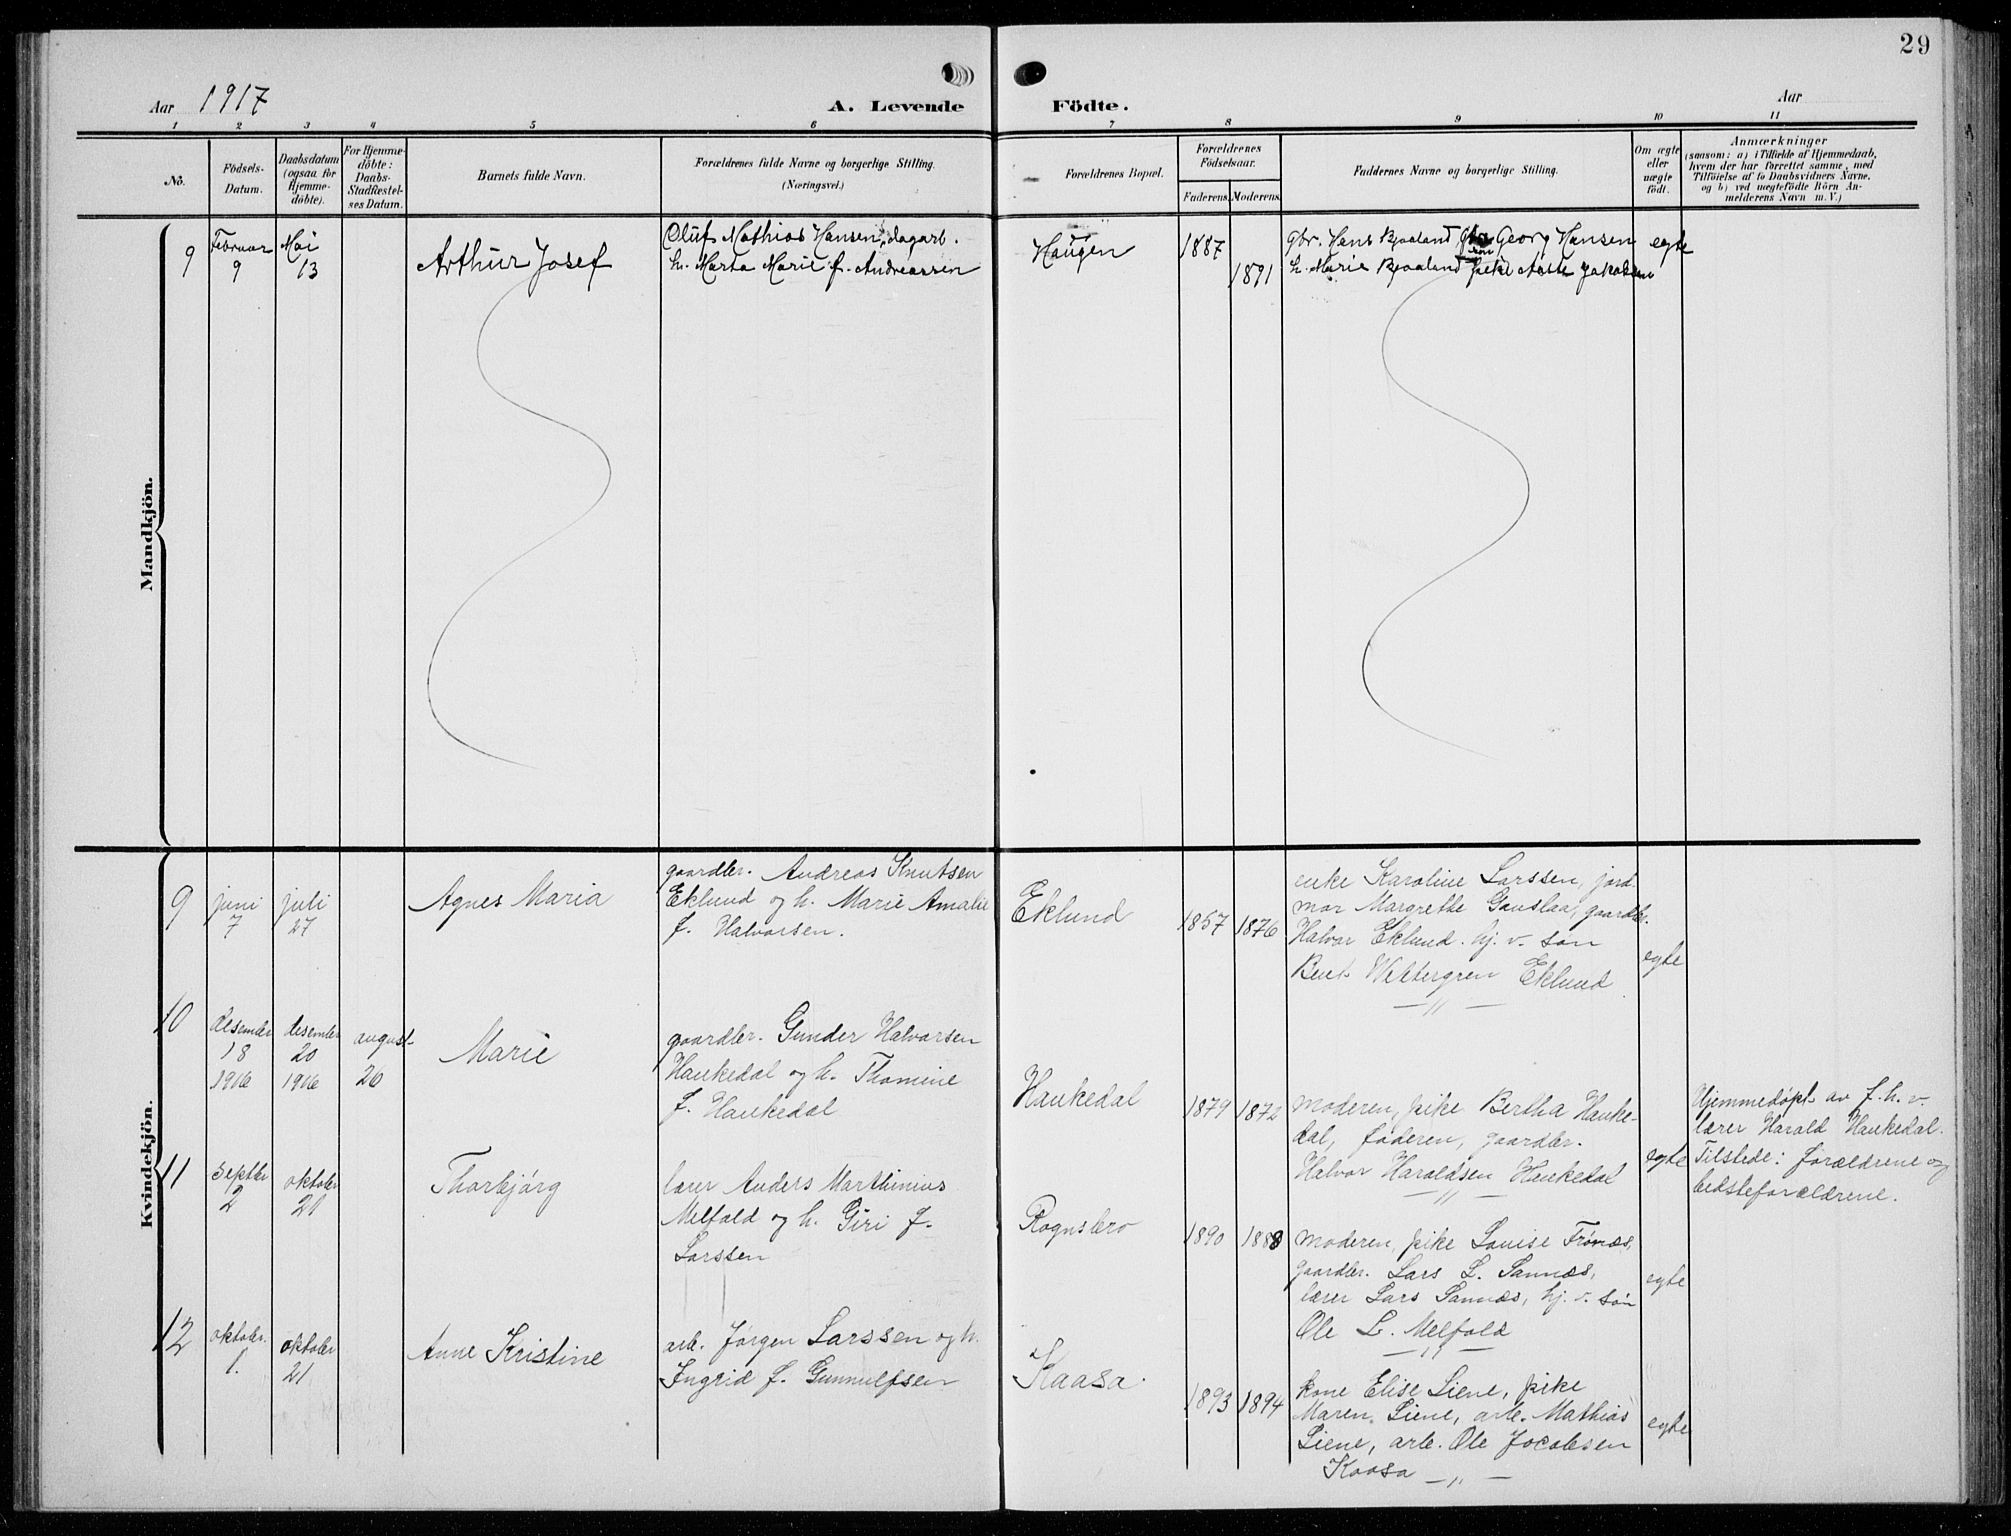 29
Aar 1917
A. Levende Födte.
Aar
1 2 3 4 5 6 7 8 9 10 11
No.
Födsels-Datum.
Daabsdatum (ogsaa for Hjemme-döbte).
For Hjemme-döbte: Daabs-Stadfæstel-ses Datum.
Barnets fulde Navn.
Forældrenes fulde Navne og borgerlige Stilling.
(Næringsvei.)
Forældrenes Bopæl.
Forældrenes Födselsaar.
Faderens. Moderens.
Faddernes Navne og borgerlige Stilling.
Om ægte eller uægte födt.
Anmærkninger
(saasom: a) i Tilfælde af Hjemmedaab,
hvem der har forrettet samme, med
Tilföielse af to Daabsvidners Navne,
og b) ved uægtefödte Börn An-
melderens Navn m. V.)
Mandkjön.
9
Februar
9
Mai
13
Arthur Josef
Oluf Mathias Hansen, dagarb.
h. Marta Marie f. Andreassen
Haugen
1887
1891
Gbr. Hans Bjaaland Georg Hansen
h. Marie Bjaaland pike Jakobsen
egte
Kvindekjön.
9
juni
7
juli
27
Agnes Maria
gaardbr. Andreas Knutsen
Eklund og h. Marie Amalie
f. Halvorsen.
Eklund
1857 1876
enke Karoline Larssen, jord
mor Margrethe Gauslaa, gaardbr.
Halvor Eklund. hj. v. søn
Bent Wettergren Eklund
— " —
egte
10
desember
18
1916
desember
20
1916
august
26
Marie
gaardbr. Gunder Halvorsen
Haukedal og h. Thomine
f. Haukedal
Haukedal
1879 1872
moderen, pike Bertha Hauke-
dal, faderen, gaardbr.
Halvor Haraldsen Haukedal
— " —
egte
Hjemmedøpt av f. h. v.
lærer Harald Haukedal.
Tilstede: forældrene og
bedsteforældrene.
11
septbr
2
oktober
21
Thorbjørg
lærer Anders Marthinius
Melfald og h. Giri f.
Larssen
Rognsbro
1890 1888
moderen, pike Louise Frønæs,
gaardbr. Lars L. Sannæs,
lærer Lars Sannæs, hj. v. søn
Ole L. Melfald
— " —
egte
12
oktober.
1.
oktober
21
Anne Kristine
arb. Jørgen Larssen og h.
Ingrid f. Gunnulfsen
Kaasa.
1893 1894
kone Elise Liene, pike
Maren Liene, arb. Mathias
Liene, arb. Ole Jacobsen
Kaasa — " —
egte